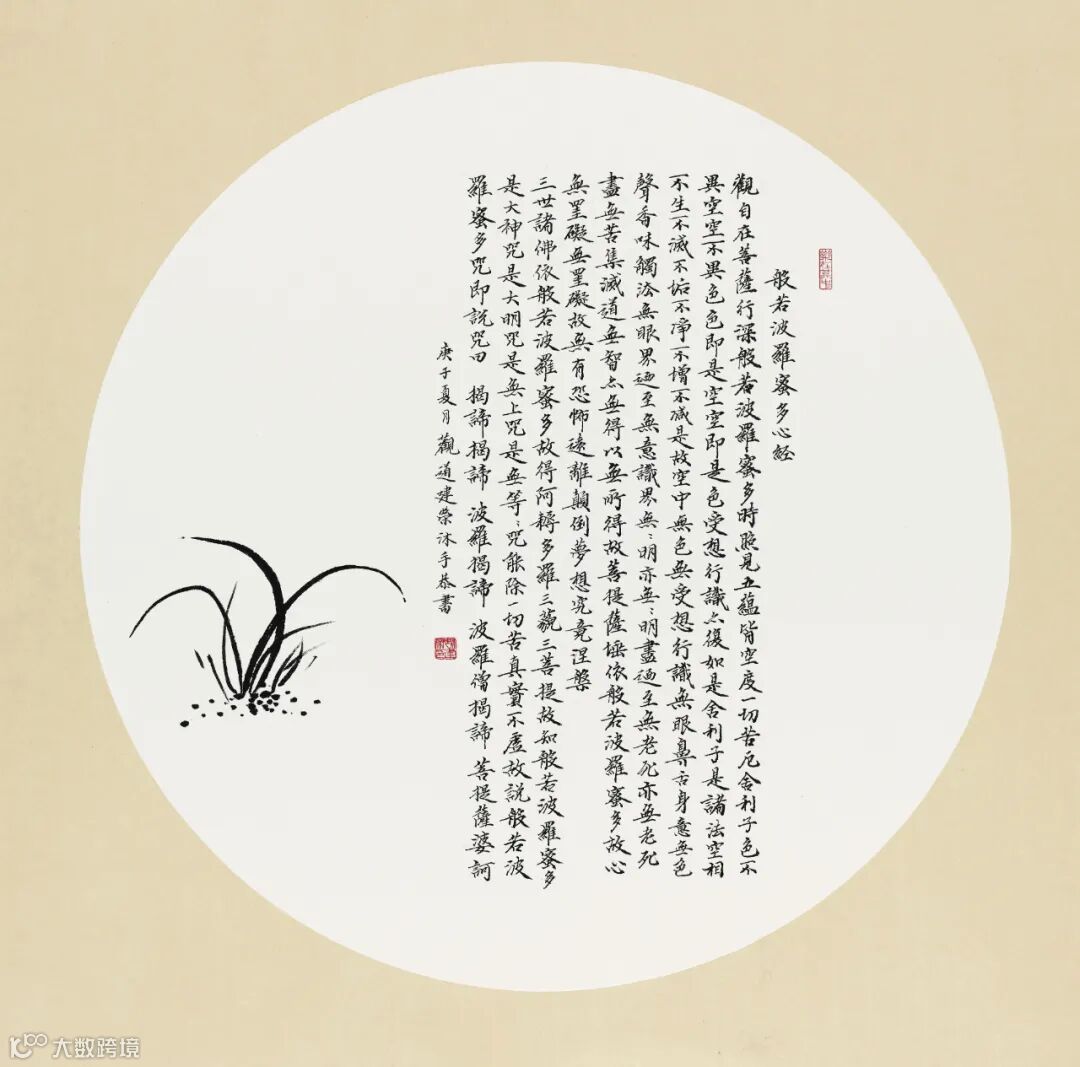 般若波羅蜜多心經
觀自在菩薩行深般若波羅蜜多時照見五蘊皆空度一切苦厄舍利子色不
異空空不異色色即是空空即是色受想行識亦復如是舍利子是諸法空相
不生不滅不垢不淨不增不減是故空中無色無受想行識無眼鼻舌身意無色
聲香味觸法無眼界迺至無意識界無〻明亦無〻明盡迺至無老死亦無老死
盡無苦集滅道無智亦無得以無所得故菩提薩埵依般若波羅蜜多故心
無罣礙無罣礙故無有恐怖遠離顛倒夢想究竟涅槃
三世諸佛依般若波羅蜜多故得阿耨多羅三藐三菩提故知般若波羅蜜多
是大神咒是大明咒是無上咒是無等〻咒能除一切苦真實不虛故說般若波
羅蜜多咒即說咒曰 揭諦揭諦 波羅揭諦 波羅僧揭諦 菩提薩婆訶
庚子夏月觀道建榮沐手恭書
大数跨境